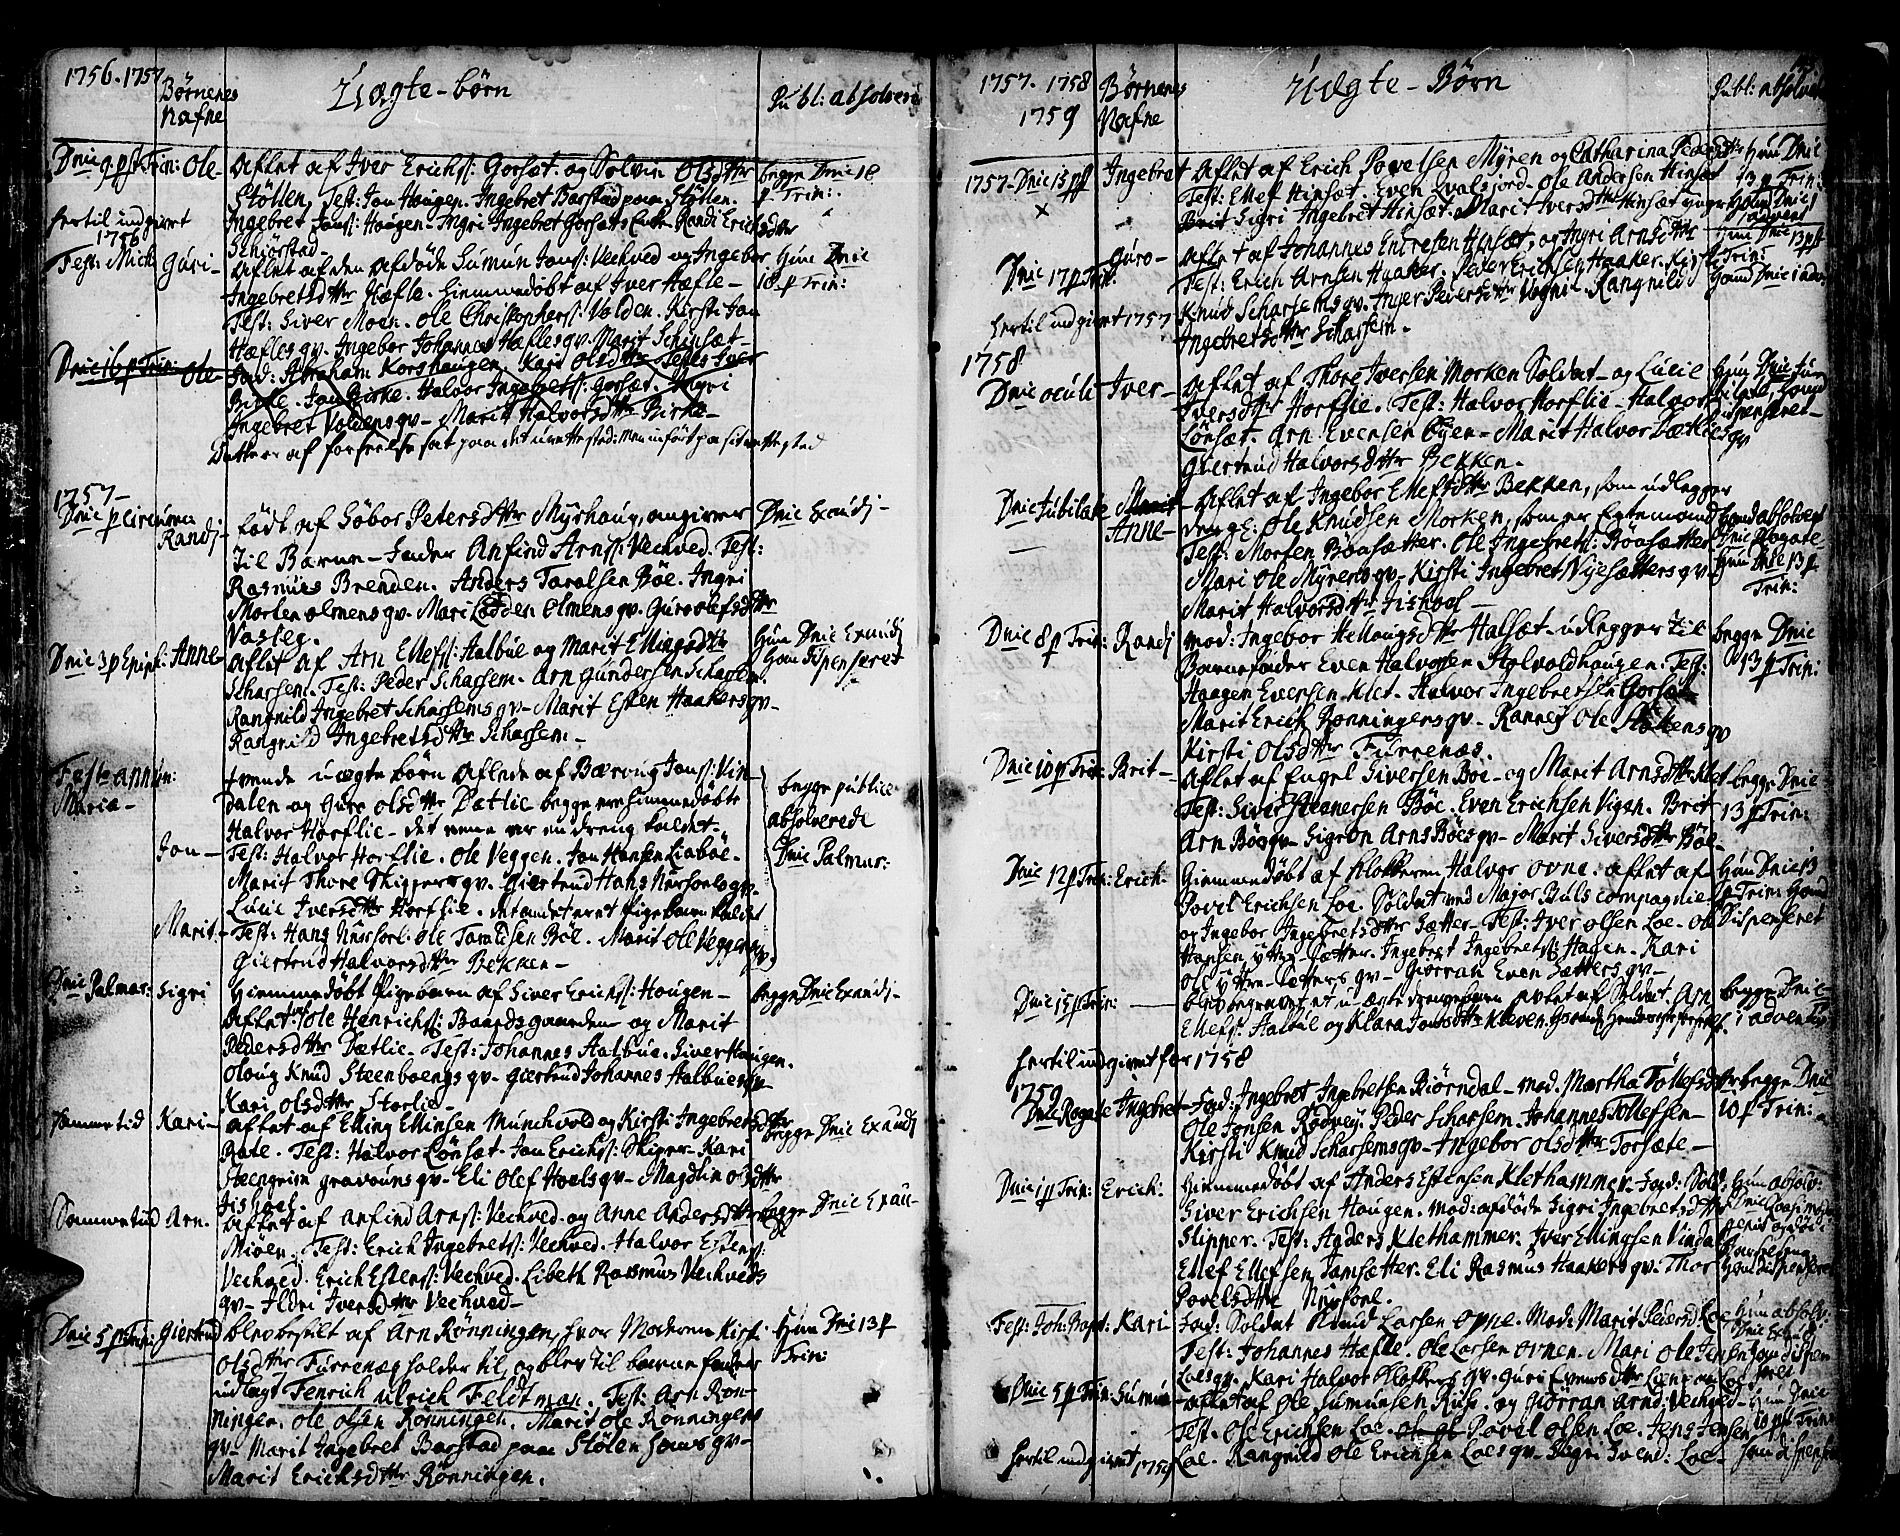 1756. 1757
Børnenes
Nafne
Uægte-børn
Publ: absolver:
Dnic 9 p st Trin: Ole-
Aflet af Iver Erichs: Gorsæt. og Solvin Olsdttr
Stölen, Test: Jon Hougen. Ingebret Barstad paa Stölen.
Ingebret Jons: Hougen. Ingri Ingebret Gorsæts Enke. Randi Erichsdttr
Schiørstad
begge Dnic 18
p Trin:
hertil indgivet
1756
Fest: Mich. Guri-
Aflet af den afdöde Sumun Jons: Vechved og Ingebor
Ingebretsdttr Hæfle. hiemmedöbt af Iver Hæfle-
Test: Siver Moen. Ole Christophers: Volden. Kirsti Jon
Hæflesqv. Ingebor Johannes Hæflesqv. Marit Schinsæt-
Hun Dnic
18 p Trin:
Dnic 16 p Trin: Ole-
Fad: Abraham Korshaugen. Kari Olsdttr Test: Iver
Birke. Jon Birke. Halvor Ingebrets: Gorsæt. Ingri
Ingebret Voldensqv- Marit Halvorsdttr Birke-
Dette er af forseelse sat paa det urette sted: men infört paa sit rette sted
1757-
Dnic p Circumc:
Randi-
födt af Söbor Petersdttr Myrhaug, angiver
til Barne-Fader Anfind Arns: Vechved. Test:
Rasmus Brenden. Anders Taralsen Böe. Ingri
Morten Olmensqv. Mari Ladden Olmensqv. Guro Olefsdttr
Vasleg.
Dnic Exaudj-
Dnic 3 p Epiph: Anne-
Aflet af Arn Ellefs: Halbue og Marit Ellingsdttr
Scharsem. Test: Peder Scharsem. Arn Gundersen Scharsem.
Rangnild Ingebret Scharsemsqv- Marit Esten Haakersqv-
Rangnild Ingebretsdttr Scharsem-
Hun Dnic Exaudj
Hand Dispenseret
Festo Annun:
Mariæ-
tvende uægte börn Aflede af Bærong Jons: Vin-
dalen og Guro Olsdttr Dætlie begge ere hiemmedöbte
Halvor Horflie- det eene er en dreng kaldet-
Jon-
Test: Halvor Horflie. Ole Veggen. Jon Hansen Liaböe-
Marit Thore Skippersqv- Giertrud Hans Nursoelsqv-
Lucie Iversdttr Horflie. det andet er et Pigebarn kaldet
Marit-
Test: Hans Nursoel: Ole Taraldsen Böe. Marit Ole Veggensqv
Giertrud Halvorsdttr Bekken-
begge publice
absolverede
Dnic Palmar:
Dnic Palmar: Sigri
Hiemmedöbt Pigebarn af Siver Erichs: Hougen-
Aflet: Ole Henrichs: Baardsgaarden- og Marit
Pedersdttr Dætlie. Test: Johannes Halbue. Siver Haugen.
Oloug Knud Steenboengsqv- Giertrud Johannes Halbuesqv-
Kari Olsdttr Storlie-
begge Dnic Exaudj-
Sammetid Kari-
Aflet af Elling Ellinsen Munchvold og Kirsti Ingebretsdttr
Rate. Test: Halvor Lönsæt. Jon Erichs: Skiper- Kari
Steengrim gravounsqv- Eli Olef Hoelsqv- Magdlin Olsdttr
Fishoel.
begge Dnic Exaudj
Sammetid Arn.
Aflet af Anfind Arns: Vechved. og Anne Andersdttr
Miöen. Test: Erich Ingebrets: Vechved. Halvor Estens:
Vechved. Erich Estens: Vechved. Lisbeth Rasmus Vechveds
qv- Ildri Iversdttr Vechved-
begge Dnic Exau-
Dnic 5 p Trin: Giertrud
blev besilt af Arn Rönningen, hvor Moderen Kirst.
Olsdttr Furrenæs holder til, og blev til barne fader
udlagt Henrich Ulrich Feldtman. Test: Arn Rön-
ningen. Ole Olsen Rönningen. Marit Ole Rönningens
qv- Marit Ingebret Barstad paa Stölen Jonsqv-
Marit Erichsdttr Rönningen.
Hun Dnic 13 p
Trin:
1757. 1758
1759
Børnenes
Nafne
Uægte-Børn
Publ: absolver:
1757-Dnic 13 p st Ingebret
Aflet af Erich Povelsen Myren og Catharina Pedersdttr
Test: Ellef Hinsæt. Even Qvalsjord. Ole Andersen Hinsæt
Brit Sigri Ingebret Hinsæt. Marit Iversdttr Hinsæt
Hun Dnic
13 p Trin:
Hand Dnic 1
advent
Dnic 17 p Trin:
Guro-
Aflet af Johannes Endresen Hinsæt, og Ingri Arnsdttr
Test: Erich Arnsen Haaker. Peder Erichsen Haaker. Kirsti
Knud Scharsemsqv. Inger Pedersdttr Vognil. Rangnild
Ingebretsdttr Scharsem.
Hun Dnic 13 p st
Trin:
Hand Dnic 1 adv:
hertil indgivet 1757
1758
Dnic Oculi Iver-
Aflet af Thore Iversen Morken Soldat- og Lucie
Iversdttr Horflie. Test: Halvor Horflie- Halvor
Lönsæt. Arn Evensen Öyen- Marit Halvor Dætliesqv
Giertrud Halvorsdttr Bekken.
Hun Dnic Ju-
bilate, Hand
Dispenseret-
Dnic Jubilate Marit
Anne-
Aflet af Ingebor Ellefsdttr Bekken, som udlegger
dreng: Ole Knudsen Morken, som er Egtemand
Test: Morten Böasætter. Ole Ingebrets: Böasætter
Mari Ole Myrensqv- Kirsti Ingebret Nyesættersqv-
Marit Halvorsdttr Fishoel-
Hand absolveret
Dnic Rogate-
Hun Dnic 13 p
Trin:
Dnic 8 p Trin: Randj
mod: Ingebor Hellougsdttr Halsæt- udlegger til
Barnefader Even Halvorsen Stölvoldhaugen: Test:
Haagen Evensen Klet- Halvor Ingebretsen Gorsæt
Marit Erich Rönningensqv- Rannei Ole Stölensqv
Kirsti Olsdttr Furrenæs.
begge Dnic
13 p Trin:
Dnic 10 p Trin: Brit-
Aflet af Engel Siversen Böe- og Marit Arnsdttr Klet
Test: Siver Steenersen Böe. Even Erichsen Vigen. Brit
Arn Böesqv- Sigron Arns Böesqv- Marit Siversdttr Böe-
begge Dnic
13 p Trin:
Dnic 12 p Trin: Erich-
Hiemmedöbt af Klokkeren Halvor Ovne: aflet af
Povel Erichsen Loe. Soldat ved Major Buls compagnie
og Ingebor Ingebretsdttr Sætter- Test: Iver Olsen Loe- Ole
Hansen yttre Sætter. Ingebret Ingebrets: Hagen. Kari
Ole yttre-Setters qv- Giörran Even Sættersqv-
Hun Dnic 13
p Trin: Hand
Dispenseret
Dnic 15 p Trin:
blev begravet et uægte drengebarn avlet af Soldat Arn
Ellefs: Halbue og Klara Jonsdttr Kleven.
begge Dnic
1 advent
hertil indgivet for 1758
1759
Dnic Rogate Ingebret-
Fad: Ingebret Ingebretsen Biörndal- mod. Martha Tollefsdttr
Ole Jonsen Rödvey. Peder Scharsem. Johannes Tollefsen-
Kirsti Knud Scharsemsqv- Ingebor Olsdttr Torsæte-
begge Dnic
10 p Trin:
Dnic 1 p Trin: Erich:
Hiemmedöbt af Anders Estensen Klethammer- Fad: Sold.
Siver Erichsen Hougen. Mod: afdöde Sigri Ingebretsdttr
Skipper. Test: Anders Klethammer. Iver Ellingsen Vindal
Ellef Ellefsen Samsætter. Eli Rasmus Haakersqv. Thor
Povelsdttr Nursoel.
Hun absolv:
Dnic Qvasimodo
geniti og döde i
Barselseng
Hand dispenseret
Fest: Joh: Bapt: Kari
Fad: Soldat Knud Larsen Opne. Mod: Marit Pedersd Loe
Test: Johannes Hæfle. Ole Larsen Ovnen. Mari Ole Jensen
Loesqv. Kari Halvor Klokkersqv. Guri Evensdttr
Hun absolv:
Dnic Exaudi
Hand dispen-
seret-
Dnic 5 p Trin: Sumun-
Aflet af Ole Sumunsen Ruse. og Giörran Arnd: Vechved-
Test. Ole Erichsen Loe. Povel Olsen Loe. Jens Jensen
Loe. Rangnild Ole Erichsen Loesqv- Sigri Svend: Loe-
Hun Dnic
10 p Trin:
Hand dispen:
hertil indgivet 1759